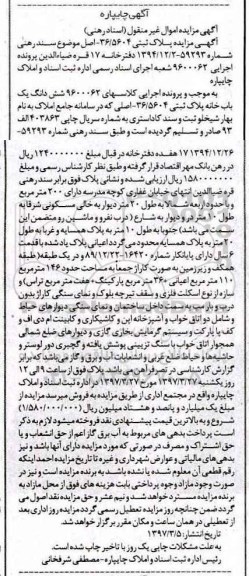 آگهی چاپپاره
آگهی مزایده اموال غیر منقول (اسناد رهنی)
آگهی مزایده پلاک ثبتی ۳۶/۵۶۰۴-اصل موضوع سند رهنی
شماره ۵۹۲۹۳-۱۳۹۴/۱۲/۲ دفترخانه ۱۷ قره ضیاءالدین پرونده
۹۶۰۰۰۶۲ شعبه اجرای اسناد رسمی اداره ثبت اسناد و املاک
چایپاره
به موجب و پرونده اجرایی کلاسهای ۹۶۰۰۰۶۲ شش دانگ یک
باب خانه پلاک ثبتی ۳۶/۵۶۰۴-اصلی که در سامانه جامع املاک به نام
بهار شیخلو ثبت و سند کاداستری به شماره سریال چاپی ۴۰۳۸۶۳ الف
۹۳ صادر و تسلیم گردیده است و طبق سند رهنی شماره ۵۹۲۹۳-
۱۳۹۴/۱۲/۲۶ ۱۷ هفده دفترخانه در قبال مبلغ ۱۲۴۰۰۰۰۰۰۰ ریال
در رهن بانک مهر اقتصاد قرار گرفته و طبق نظر کارشناس رسمی و مبلغ
۱۵۸۰۰۰۰۰۰۰ ریال ارزیابی شده و نشانی پلاک فوق برابر سند رهنی
قره ضیاءالدین انتهای خیابان غفاری کوچه مدرسه دارای ۲۰۰ متر مربع
و با حدود اربعه شمالا به طول ۲۰ متر دیوار به خالی مسکونی شرقا به
طول ۱۰ متر در و دیوار به شارع
می باشد) جنوبا به طول ۱۰ متر به پلاک همسایه و غربا به طول
۲۰ متر به پلاک همسایه محدود می گردد اعیانی پلاک یاد شده با قدمت
۶ سال دارای پایانکار شماره ۱۶۴۲۰-۸۹/۱۲/۲۲ و در یک طبقه (طبقه
همکف و زیرزمین به صورت کاراژ جمعا به مساحت حدود ۱۴۶ متر مربع
۱۱۰ متر مربع اعیانی +۳۶۰ متر مربع پارکینگ+ هفت متر مربع تراس) و
سازه از نوع اسکلت فلزی و سقف تیرچه بلوک و نمای سنگی کاراژ بدون
و شامل دو اتاق خواب و آشپزخانه اپن و کاشیکاری و کابینت ام دی اف و
کف پارکت و سیستم گرمایش بخاری گازی و دیوارهای ضلع شمالی
همجوار اتاق خواب با سنگ تزیینی پوشش یافته و گچبری دور لوستر و
حاشیه ها و حیاط ضلع غربی و انشعابات آب و برق و گاز می باشد که برابر
گزارش کارشناسی در تصرف راهن می باشد پلاک فوق از ساعت ۹ الی ۱۲
روز یکشنبه ۱۳۹۷/۳/۲۷ مورخ ۱۳۹۷/۳/۲۷ در اداره ثبت اسناد و املاک
چایپاره واقع در مجتمع اداری از طریق مزایده به فروش میرسد مزایده از
مبلغ یک میلیارد و پانصد و هشتاد میلیون ریال (۱/۵۸۰/۰۰۰/۰۰۰)
شروع و به بالاترین قیمت پیشنهادی نقد فروخته میشود لازم به ذکر
است پرداخت بدهی های مربوط به آب برق گاز اعم از حق انشعاب و یا
حق اشتراک و مصرف در صورتی که مورد مزایده دارای آنها باشد و نیز
بدهی های مالیاتی و عوارض شهرداری و غیره تا تاریخ مزایده اعم از اینکه
رقم قطعی آن معلوم شده یا نشده باشد به برنده مزایده است و نیز در
صورت وجود مازاد وجوه پرداختی بابت هزینه های فوق از محل مازاد به
برنده مزایده مسترد خواهد شد و نیم عشر و حق مزایده نقدا وصول می
گردد ضمن چنانچه روز مزایده تعطیل رسمی گردد مزایده روز اداری بعد
از تعطیلی در همان ساعت و مکان مقرر برگزار خواهد شد.
تاریخ انتشار: ۱۳۹۷/۳/۵
به علت مشکلات چاپی یک روز با تاخیر چاپ شده است.
رئیس اداره ثبت اسناد و املاک چایپاره-مصطفی شرفخانی